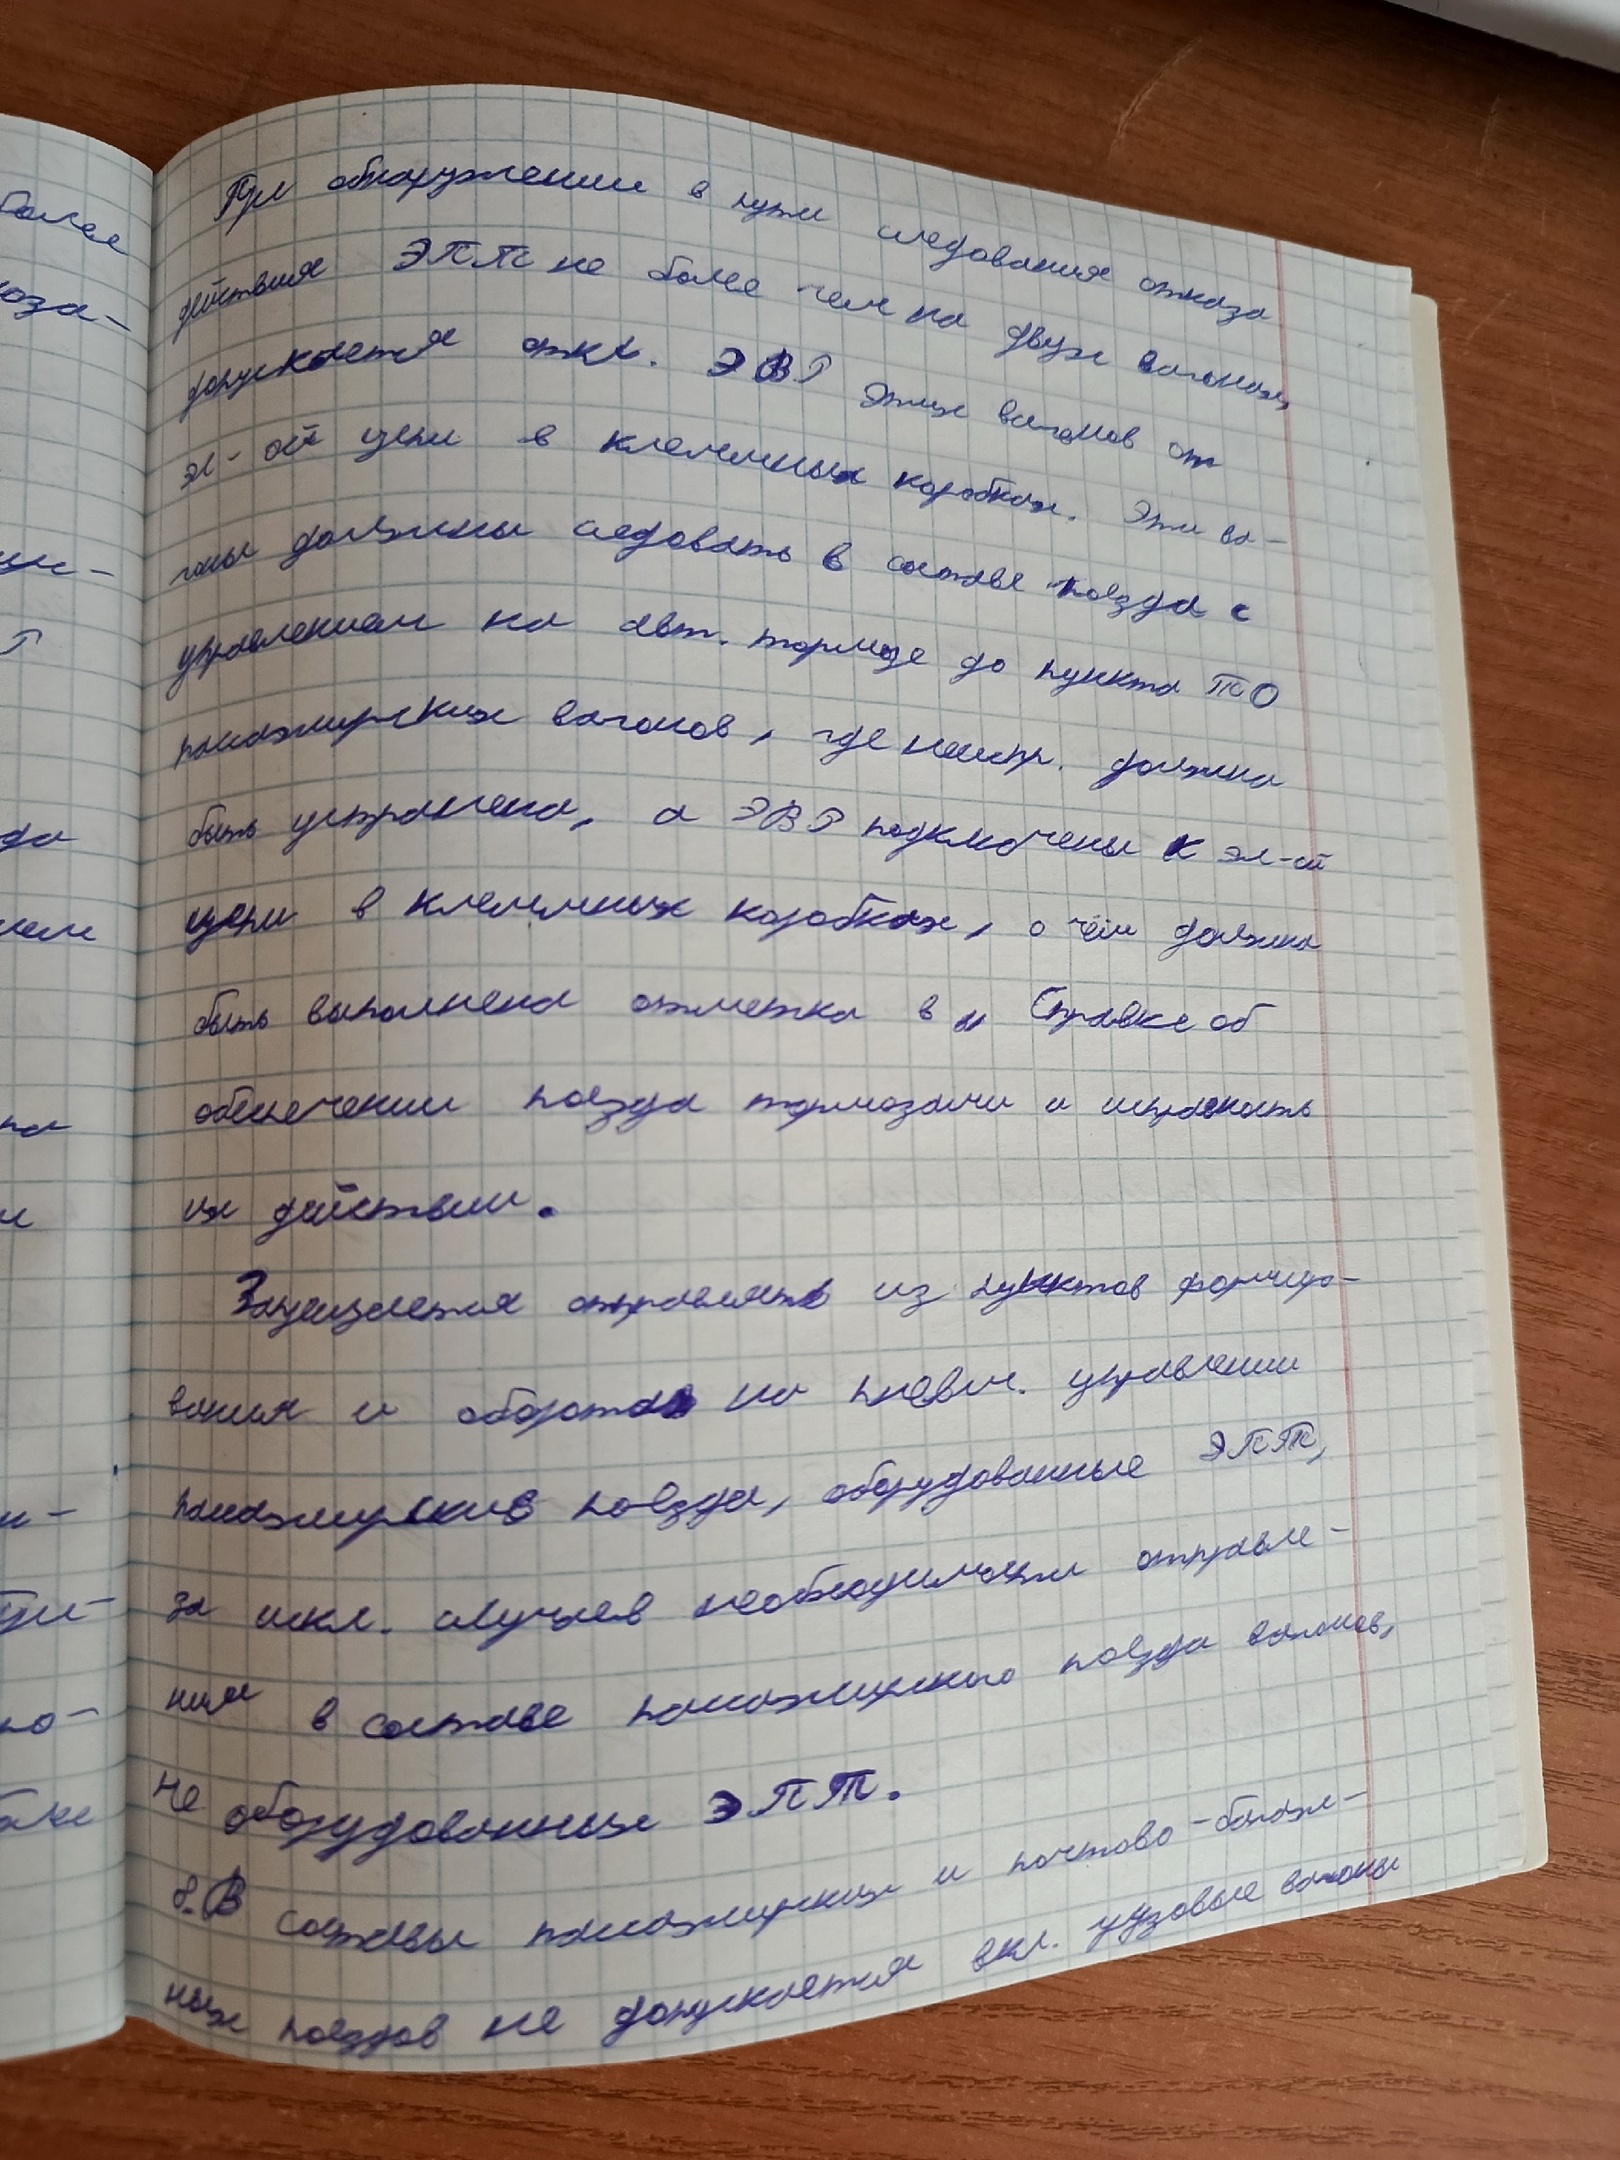 При обнаружении в пути следования отказа
действия ЭПТ не более чем на двух вагонах,
допускается откл. ЭВР этих вагонов от
эл-ой цепи в клеммных коробках. Эти ва-
гоны должны следовать в составе поезда с
управлением на авт. тормозе до пункта ТО
пассажирских вагонов, где неиспр. должна
быть устранена, а ЭВР подключены к эл-ой
цепи в клеммных коробках, о чём должна
быть выполнена отметка в „ Справке об
обеспечении поезда тормозами и исправность
их действии.
Запрещается отправлять из пунктов формиро-
вания и оборота на пневм. управлении
пассажирские поезда, оборудованные ЭПТ,
за искл. случаев необходимости отправле-
ния в составе пассажирского поезда вагонов,
не оборудованных ЭПТ.
8. В составы пассажирских и почтово-багаж-
ных поездов не допускается вкл. грузовые вагоны
более
оза-
да
на
и
но-